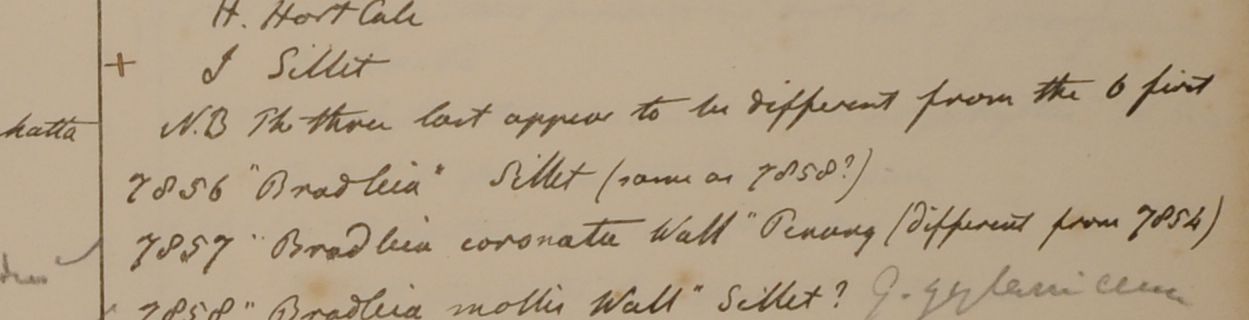 H. Hort Calc
+ I Sillet
N.B The three last appear to be different from the 6 first
hatta
7856 "Bradleia" Sillet (same as 7858?)
7857 "Bradleia coronata Wall" Penang (different from 7854)
7858 "Bradleia mollis Wall" Sillet? G. zeylanicum